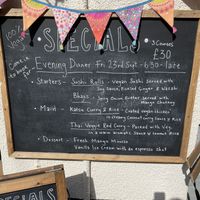 100%
Vegan
SPECIALS
Come in to book for
3 Courses
£30
Evening Dinner Fri 23rd Sept - 6:30 - late
Starters - Sushi Rolls - Vegan Sushi served with
Soy Sauce, Pickled Ginger & Wasabi
Bhajis - Spicy Onion fritter served with
Mango Chutney
Mains - Katsu Curry & Rice - Coated vegan chicken
in creamy Coconut Curry Sauce & Rice
Thai Veggie Red Curry - Packed with Veg
in a warm aromatic Sauce & Coconut Rice
Dessert - Fresh Mango Mousse
Vanilla Ice Cream with an espresso shot
SPECIALS